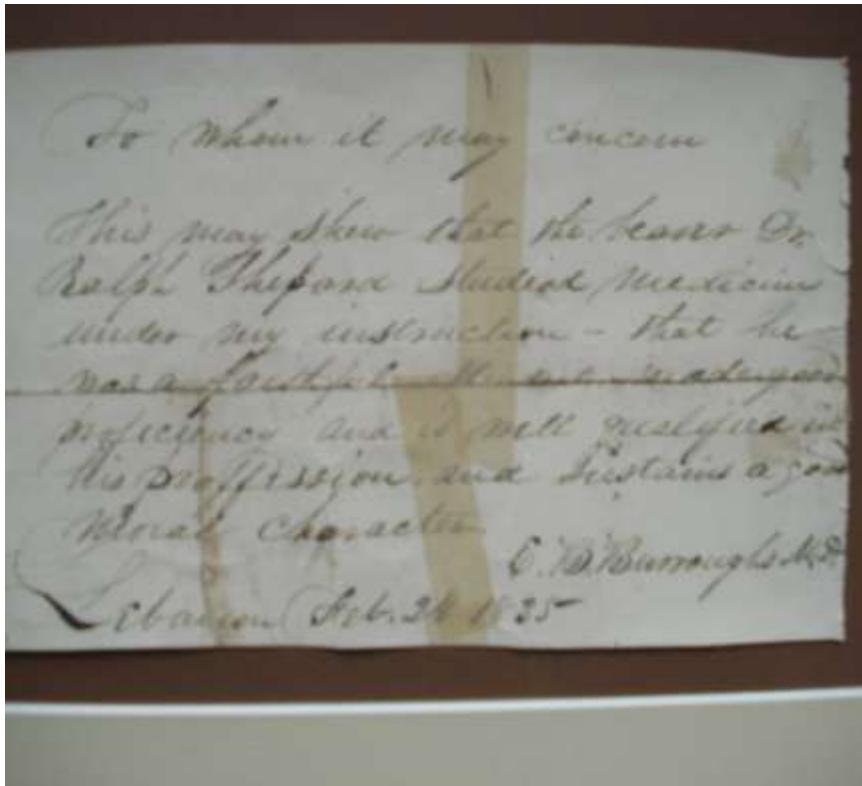 To whom it may concern
This may shew that the bearer Dr.
Ralph Shepard studied Medicine
under my instruction – that he
was a faithful made good
proficiency and is well qualified in
his proffession and sustains a good
Moral Character
C. B. Burroughs M.D.
Lebanon Feb. 24 1825